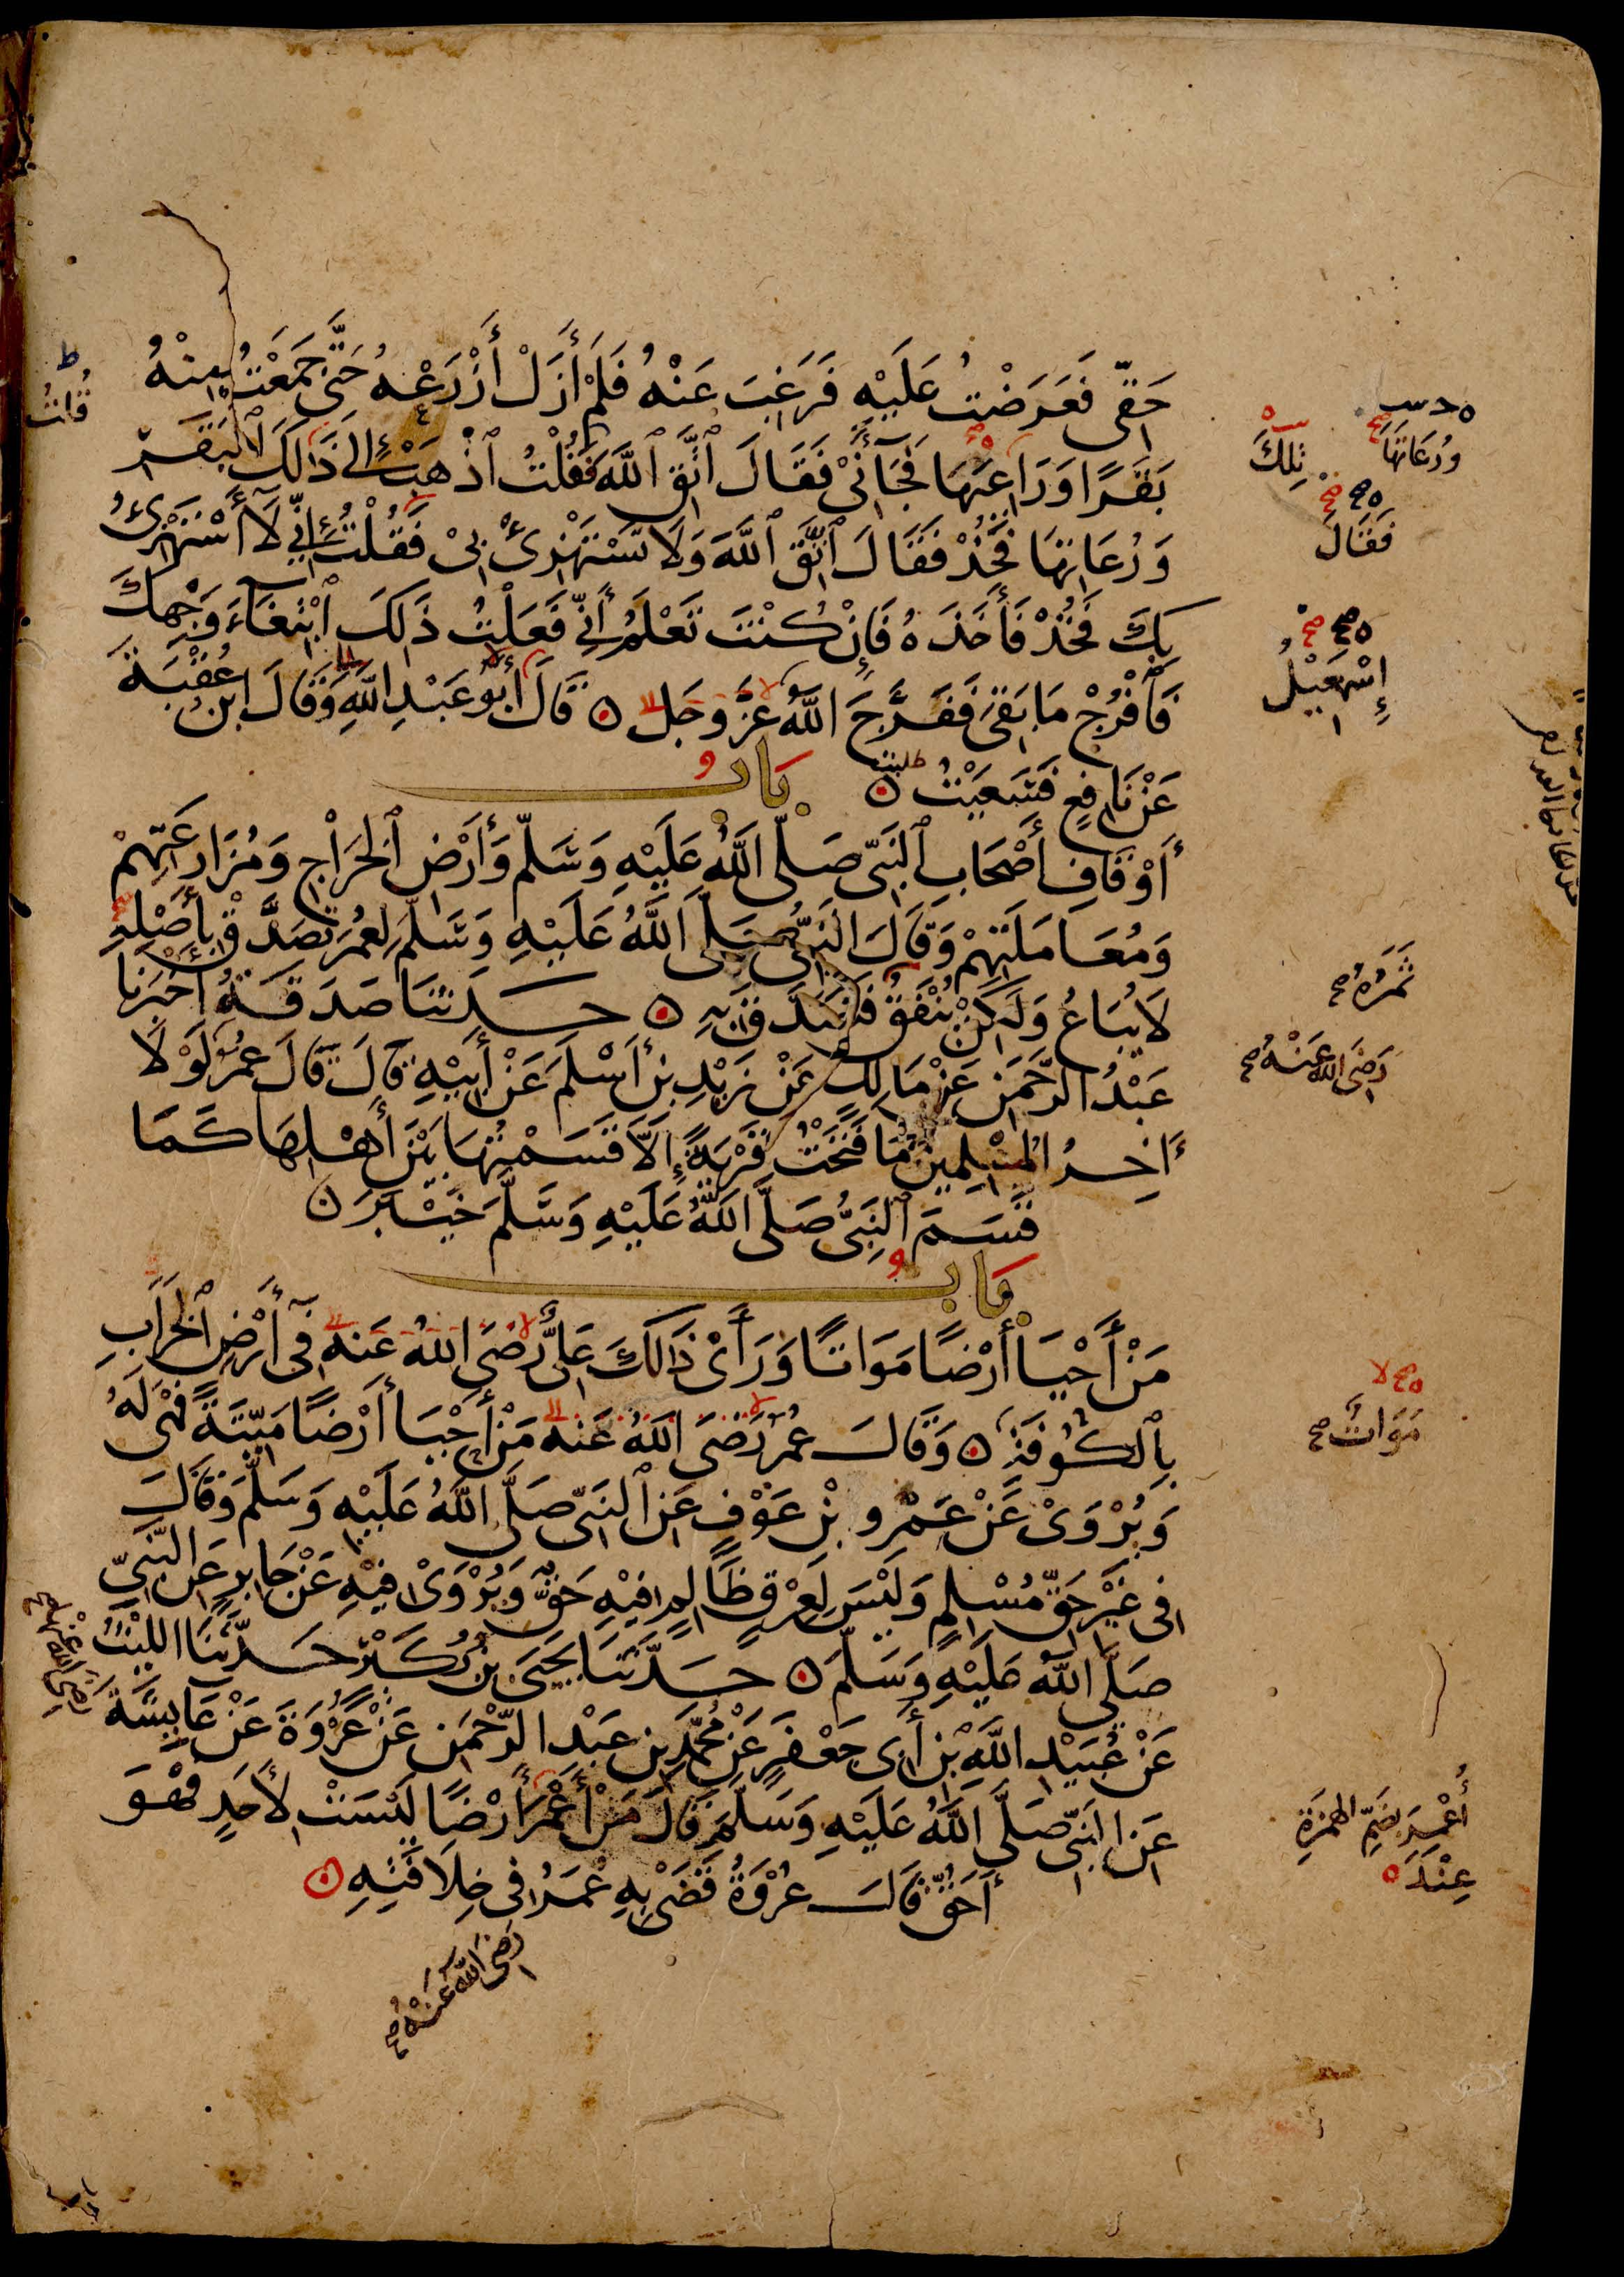 حَقِّي فَعَرَضْتُ عَلَيْهِ فَرَغِبَ عَنْهُ فَلَمْ أَزَلْ أَزْرَعُهُ حَتَّى جَمَعْتُ مِنْهُ
بَقَرًا وَرَاعِيَهَا فَجَآءَنِي فَقَالَ ٱتَّقِ ٱللَّهَ فَقُلْتُ ٱذْهَبْ إِلَى ذَالِكَ ٱلْبَقَرِ
وَرُعَاتِهَا فَخُذْ فَقَالَ ٱتَّقِ ٱللَّهَ وَلَا تَسْتَهْزِئْ بِيْ فَقُلْتُ إِنِّي لَآ أَسْتَهْزِئُ
بِكَ فَخُذْ فَأَخَذَهُ فَإِنْ كُنْتَ تَعْلَمُ أَنِّي فَعَلْتُ ذَلِكَ ٱبْتِغَآءَ وَجْهِكَ
فَٱفْرُجْ مَا بَقِيَ فَفَرَّجَ اللَّهُ عَزَّ وَجَلَّ ۞ قَالَ أَبُو عَبْدِ اللَّهِ وَقَالَ ابْنُ عُقْبَةَ
عَنْ نَافِعٍ فَسَعَيْتُ ۞ بَابُ
أَوْقَافِ أَصْحَابِ ٱلنَّبِيِّ صَلَّى اللَّهُ عَلَيْهِ وَسَلَّمَ وَأَرْضِ ٱلْخَرَاجِ وَمُزَارَعَتِهِمْ
وَمُعَامَلَتِهِمْ وَقَالَ النَّبِيُّ صَلَّى اللَّهُ عَلَيْهِ وَسَلَّمَ لِعُمَرَ تَصَدَّقْ بِأَصْلِهِ
لَا يُبَاعُ وَلَكِنْ يُنْفَقُ فَتَصَدَّقَ بِهِ ۞ حَدَّثَنَا صَدَقَةُ أَخْبَرَنَا
عَبْدُ الرَّحْمَنِ عَنْ مَالِكٍ عَنْ زَيْدِ بْنِ أَسْلَمَ عَنْ أَبِيْهِ قَالَ قَالَ عُمَرُ لَوْلَا
ءَاخِرُ الْمُسْلِمِينَ مَا فَتَحْتُ قَرْيَةً إِلَّا قَسَمْتُهَا بَيْنَ أَهْلِهَا كَمَا
قَسَمَ ٱلنَّبِيُّ صَلَّى اللَّهُ عَلَيْهِ وَسَلَّمَ خَيْبَرَ ۞
بَابُ
مَنْ أَحْيَا أَرْضًا مَوَاتًا وَرَأَىْ ذَالِكَ عَلِيٌّ رَضِيَ اللَّهُ عَنْهُ فِي أَرْضِ ٱلْخَرَابِ
بِٱلْكُوفَةِ ۞ وَقَالَ عُمَرُ رَضِيَ اللَّهُ عَنْهُ مَنْ أَحْيَا أَرْضًا مَيِّتَةً فَهِيَ لَهُ
وَيُرْوَىْ عَنْ عَمْرِو بْنِ عَوْفٍ عَنِ ٱلنَّبِيِّ صَلَّى اللَّهُ عَلَيْهِ وَسَلَّمَ وَقَالَ
فِي غَيْرِ حَقِّ مُسْلِمٍ وَلَيْسَ لِعِرْقٍ ظَالِمٍ فِيْهِ حَقٌّ وَيُرْوَىْ فِيْهِ عَنْ جَابِرٍ عَنِ النَّبِيِّ
صَلَّى اللَّهُ عَلَيْهِ وَسَلَّمَ ۞ حَدَّثَنَا يَحْيَى بْنُ بُكَيْرٍ حَدَّثَنَا اللَّيْثُ
عَنْ عُبَيْدِ اللَّهِ بْنِ أَبِي جَعْفَرٍ عَنْ مُحَمَّدِ بْنِ عَبْدِ الرَّحْمَنِ عَنْ عُرْوَةَ عَنْ عَايِشَةَ
عَنِ النَّبِيِّ صَلَّى اللَّهُ عَلَيْهِ وَسَلَّمَ قَالَ مَنْ أَعْمَرَ أَرْضًا لَيْسَتْ لِأَحَدٍ فَهُوَ
أَحَقُّ قَالَ عُرْوَةُ قَضَى بِهِ عُمَرُ فِي خِلَافَتِهِ ۞
رَضِيَ اللَّهُ عَنْهُ صح
ط
قُلْتُ
وَرُعَاتِهَا
تِلْكَ
فَقَالَ
إِسْمَعِيلُ
ثَمَرُهُ صح
رَضِيَ اللَّهُ عَنْهُ صح
مَوَاتٌ صح
أُعْمِرَ بِضَمِّ الهمزَةِ
عِنْدَ ه